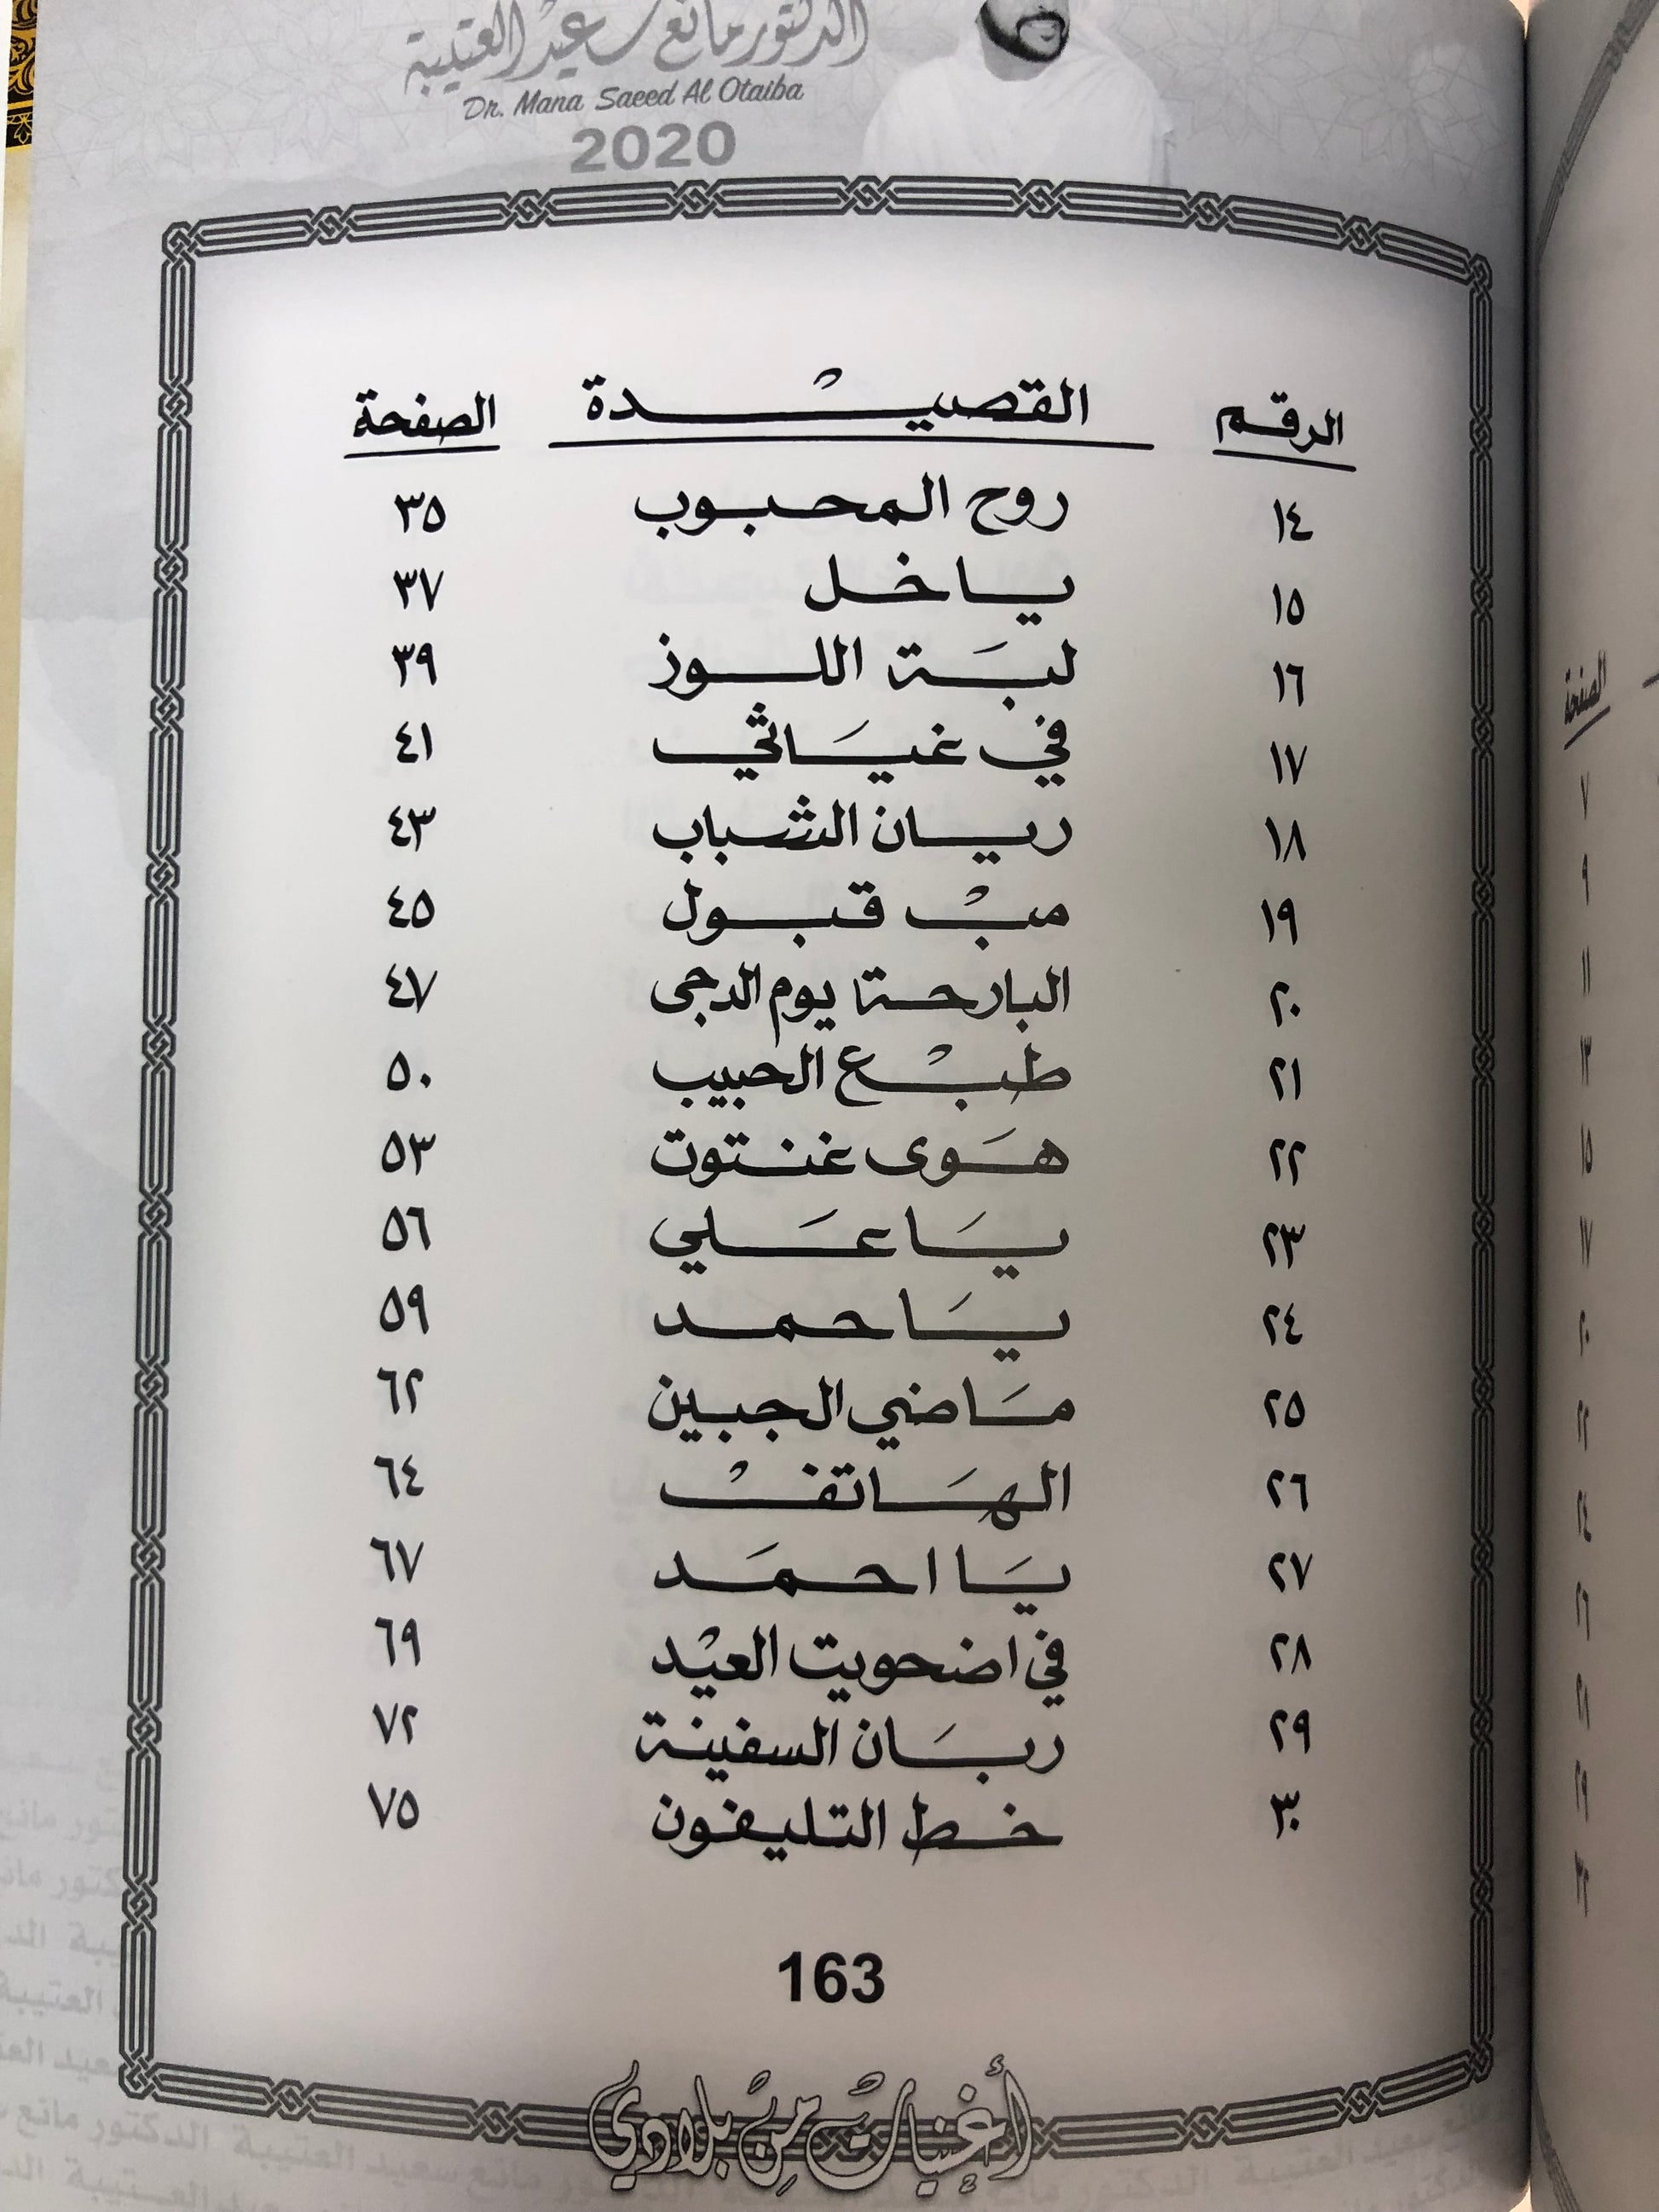 الدكتور مانع سعيد العتيبة
Dr. Mana Saeed Al Otaiba
2020
الرقم القصيْدة الصفحة
١٤ روح المحبوب ٣٥
١٥ ياخل ٣٧
١٦ لبَة اللوز ٣٩
١٧ في غيَاثي ٤١
١٨ ريان الشباب ٤٣
١٩ مبْ قبول ٤٥
٢٠ البارحة يوم الدجى ٤٧
٢١ طبْع الحبيب ٥٠
٢٢ هَوى غنتوت ٥٣
٢٣ يَاعَلي ٥٦
٢٤ يَاحمد ٥٩
٢٥ مَاضي الجبين ٦٢
٢٦ الهَاتفْ ٦٤
٢٧ يَا احمَد ٦٧
٢٨ في اضحويت العيْد ٦٩
٢٩ ربَان السفينة ٧٢
٣٠ خط التليفون ٧٥
163
أغنياتْ مِنْ بلادي
الصفحة
٧
٩
١١
١٣
١٥
١٧
٢٠
٢٢
٢٤
٢٦
٢٨
٢٩
٣٢